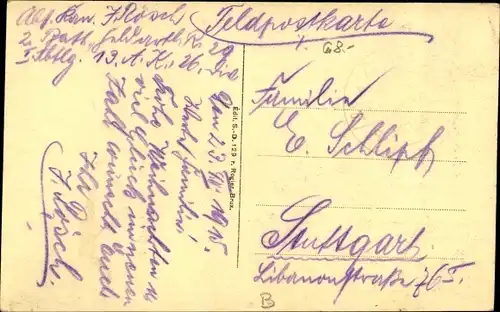 Abs. Kan. J. Rösch
2. Batt. Feldartl. R. 29
I. Abtlg. 13. A. K. 26. Div.
Feldpostkarte
68.-
Den 23. XII 1915.
Werte Familie!
Frohe Weihnachten u.
viel Glück im neuen
Jahr wünscht Euch
Ihr
J. Rösch.
Edit. S.-D. 129 r. Rogier Brux.
Familie
E. Schlipf
Stuttgart
Libanonstraße 76 I.
B